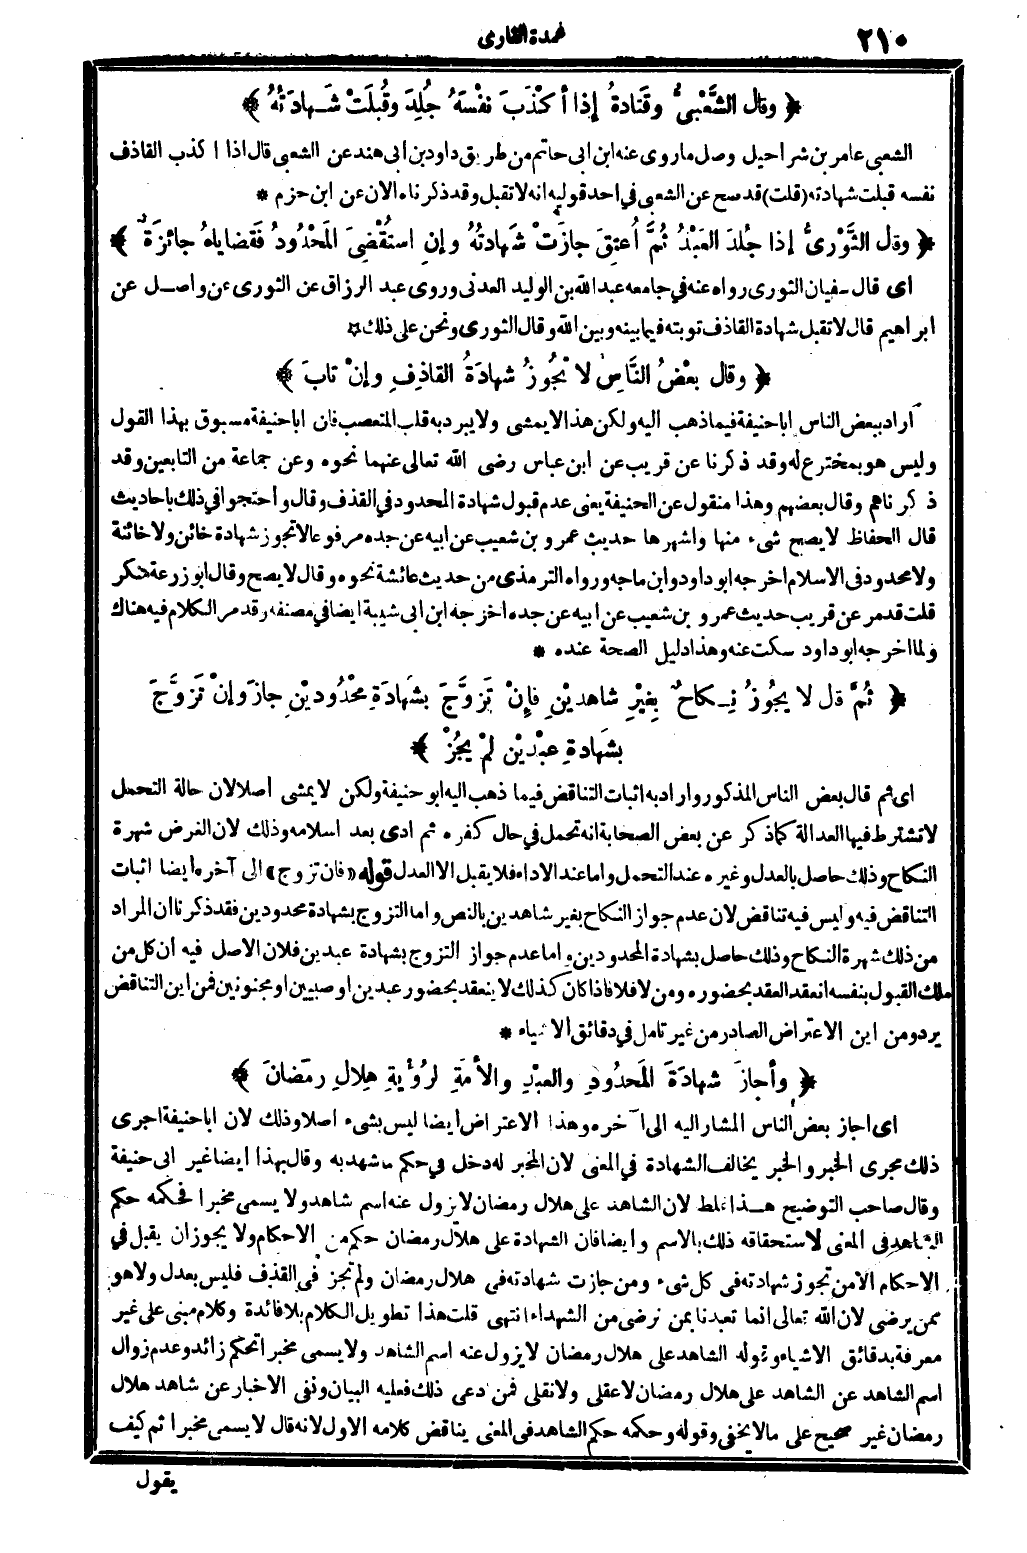 ٢١٠
عمدة القارى
﴿ وقال الشَّعْبِىُّ وقَتَادةُ إِذا أكْذَبَ نفْسَهُ جُلِدَ وقُبِلَتْ شَهادَتُهُ ﴾
الشعبى عامر بن شراحيل وصل ماروى عنه ابن ابى حاتم من طريق داود بن ابى هند عن الشعبى قال اذا اكذب القاذف
نفسه قبلت شهادته (قلت) قد صح عن الشعبى فى احد قوليه انه لا تقبل وقد ذكرناه الان عن ابن حزم *
﴿ وقال الثَّوْرِىُّ إذا جُلِدَ العَبْدُ ثُمَّ أُعتِقَ جازَتْ شَهادَتُهُ وإنِ استُقْضِىَ المَحْدُودُ فَقَضاياهُ جائزَةٌ ﴾
اى قال سفيان الثورى رواه عنه فى جامعه عبد الله بن الوليد العدنى وروى عبد الرزاق عن الثورى عن واصل عن
ابراهيم قال لا تقبل شهادة القاذف توبته فيما بينه وبين الله وقال الثورى ونحن على ذلك *
﴿ وقال بعْضُ النَّاسِ لا تَجُوزُ شهادَةُ القاذِفِ وإنْ تابَ ﴾
اراد ببعض الناس ابا حنيفة فيما ذهب اليه ولكن هذا لا يمشى ولا يبرد به قلب المتعصب فان ابا حنيفة مسبوق بهذا القول
وليس هو بمخترع له وقد ذكرنا عن قريب عن ابن عباس رضى الله تعالى عنهما نحوه وعن جماعة من التابعين وقد
ذكرناهم وقال بعضهم وهذا منقول عن الحنيفة يعنى عدم قبول شهادة المحدود فى القذف وقال واحتجوا فى ذلك باحاديث
قال الحفاظ لا يصح شىء منها واشهرها حديث عمرو بن شعيب عن ابيه عن جده مرفوعا لا تجوز شهادة خائن ولا خائنة
ولا محدود فى الاسلام اخرجه ابو داود وابن ماجه ورواه الترمذى من حديث عائشة نحوه وقال لا يصح وقال ابو زرعة منكر
قلت قد مر عن قريب حديث عمرو بن شعيب عن ابيه عن جده اخرجه ابن ابى شيبة ايضا فى مصنفه وقد مر الكلام فيه هناك
ولما اخرجه ابو داود سكت عنه وهذا دليل الصحة عنده *
﴿ ثُمَّ قال لا يجُوزُ نِكاحٌ بِغيْرِ شاهديْنِ فإنْ تَزَوَّجَ بشَهادَةِ مَحْدُوديْنِ جازَ وإنْ تَزَوَّجَ
بشَهادةِ عبْدَيْنِ لَمْ يَجُزْ ﴾
اى ثم قال بعض الناس المذكور واراد به اثبات التناقض فيما ذهب اليه ابو حنيفة ولكن لا يمشى اصلا لان حالة التحمل
لا تشترط فيها العدالة كما ذكر عن بعض الصحابة انه تحمل فى حال كفره ثم ادى بعد اسلامه وذلك لان الغرض شهرة
النكاح وذلك حاصل بالعدل وغيره عند التحمل واما عند الاداء فلا يقبل الا العدل قوله «فان تزوج» الى آخره ايضا اثبات
التناقض فيه وليس فيه تناقض لان عدم جواز النكاح بغير شاهدين بالنص واما التزوج بشهادة محدودين فقد ذكرنا ان المراد
من ذلك شهرة النكاح وذلك حاصل بشهادة المحدودين واما عدم جواز التزوج بشهادة عبدين فلان الاصل فيه ان كل من
ملك القبول بنفسه انعقد العقد بحضوره ومن لا فلا فاذا كان كذلك لا ينعقد بحضور عبدين او صبيين او مجنونين فمن اين التناقض
يرد ومن اين الاعتراض الصادر من غير تامل فى دقائق الاشياء *
﴿ وأجازَ شَهادَةَ المَحدُودِ والعبْدِ والأمَةِ لِرُؤْيةِ هِلالِ رمَضَانَ ﴾
اى اجاز بعض الناس المشار اليه الى آخره وهذا الاعتراض ايضا ليس بشىء اصلا وذلك لان ابا حنيفة اجرى
ذلك مجرى الخبر والخبر يخالف الشهادة فى المعنى لان المخبر له دخل فى حكم ما شهد به وقال بهذا ايضا غير ابى حنيفة
وقال صاحب التوضيح هذا غلط لان الشاهد على هلال رمضان لا يزول عنه اسم شاهد ولا يسمى مخبرا فحكمه حكم
الشاهد فى المعنى لاستحقاقه ذلك بالاسم وايضا فان الشهادة على هلال رمضان حكم من الاحكام ولا يجوز ان يقبل فى
الاحكام الا من تجوز شهادته فى كل شىء ومن جازت شهادته فى هلال رمضان ولم تجز فى القذف فليس بعدل ولا هو
ممن يرضى لان الله تعالى انما تعبدنا بمن نرضى من الشهداء انتهى قلت هذا تطويل الكلام بلا فائدة وكلام مبنى على غير
معرفة بدقائق الاشياء وقوله الشاهد على هلال رمضان لا يزول عنه اسم الشاهد ولا يسمى مخبرا تحكم زائد وعدم زوال
اسم الشاهد عن الشاهد على هلال رمضان لا عقلى ولا نقلى فمن ادعى ذلك فعليه البيان ونفى الاخبار عن شاهد هلال
رمضان غير صحيح على ما لا يخفى وقوله وحكمه حكم الشاهد فى المعنى يناقض كلامه الاول لانه قال لا يسمى مخبرا ثم كيف
يقول